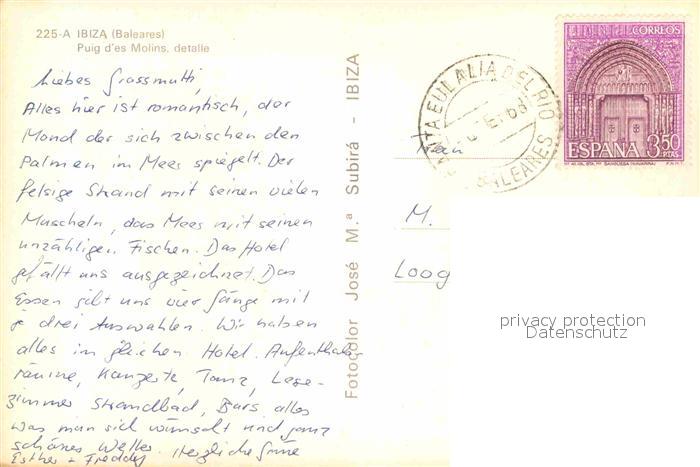 225-A IBIZA (Baleares)
Puig d'es Molins, detalle
Liebes Grossmutti,
Alles hier ist romantisch, der
Mond der sich zwischen den
Palmen im Meer spiegelt. Der
felsige Strand mit seinen vielen
Muscheln, das Meer mit seinen
unzähligen Fischen. Das Hotel
gefällt uns ausgezeichnet. Das
Essen gibt uns vier Gänge mit
je drei Auswahlen. Wir haben
alles im gleichen Hotel. Aufenthalts
räume, Konzerte, Tanz, Lese-
zimmer Strandbad, Bars, alles
was man sich wünscht und ganz
schönes Wetter. Herzliche Grüsse
Esther + Freddy
Fotocolor José M.ª Subirá - IBIZA
SANTA EULALIA DEL RIO
BALEARES
CORREOS
ESPAÑA 3,50
PTAS
Frau
M.
Loog
privacy protection
Datenschutz